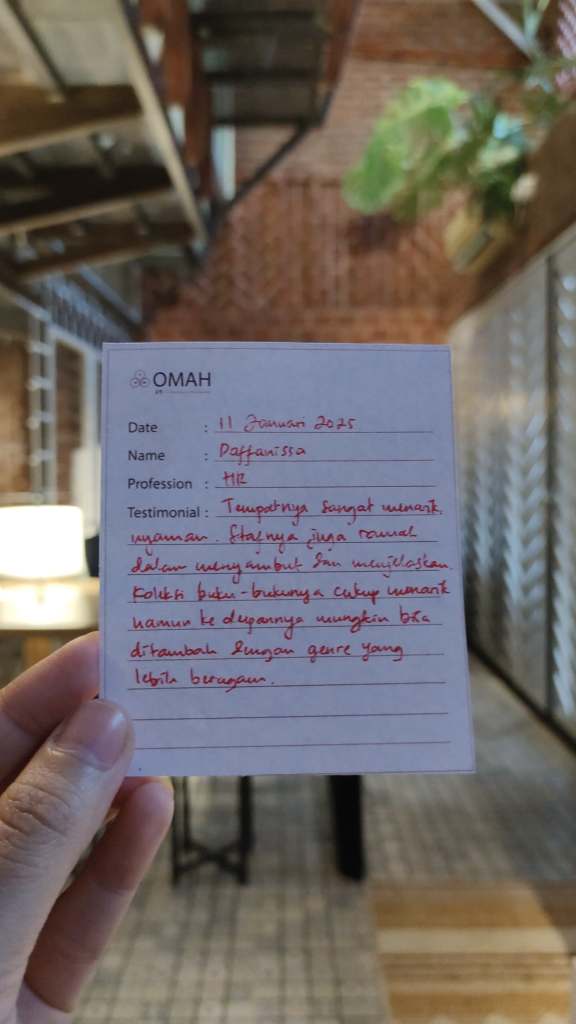 OMAH
Date : 11 Januari 2025
Name : Daffanissa
Profession : HR
Testimonial : Tempatnya sangat menarik,
nyaman. Stafnya juga ramah
dalam menyambut dan menjelaskan.
Koleksi buku-bukunya cukup menarik
namun ke depannya mungkin bisa
ditambah dengan genre yang
lebih beragam.